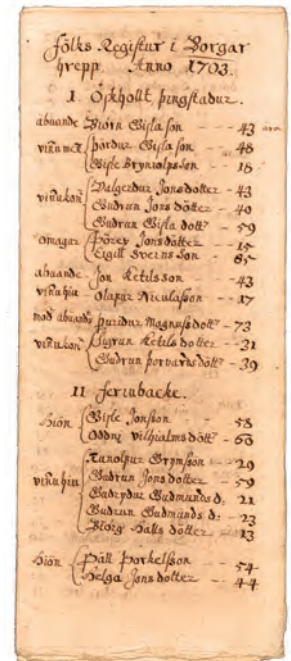 fólks Registur i Borgar
hrepp. Anno 1703.
I Öskhollt þingstadur.
abuande Biörn Gisla son - - 43 ara
viñumeñ þordur Gisla son - - 48
Gisle Bryniolps son - - 18
viñukonr Valgerdur Jonsdotter - 43
Gudrun Jons dotter - - 40
Gudrun Gisla dottr - 59
omagar Þórey Jonsdötter - - 15
Eigill Sveins son - - 85
abuande Jon Ketilsson - - 43
viñu hiu Olapur Niculaßon - - 17
mod abuands þuridur Magnußdottr - 73
viñukonr Sigrun Ketils dotter - - 31
Gudrun þorvarnsdottr - 39
II Feriubacke.
Hión Gisle Jonßon - - 58
Oddni vilhialms döttr - 60
viñu hiu Runolpur Grymßon - - 29
Gudrun Jons dotter - - 59
Gudrydur Gudmunds d: - 21
Gudrun Gudmunds d: - 23
Biörg Halls dötter - - 13
Hión Páll Þorkelßon - - 54
Helga Jons dotter - - 44